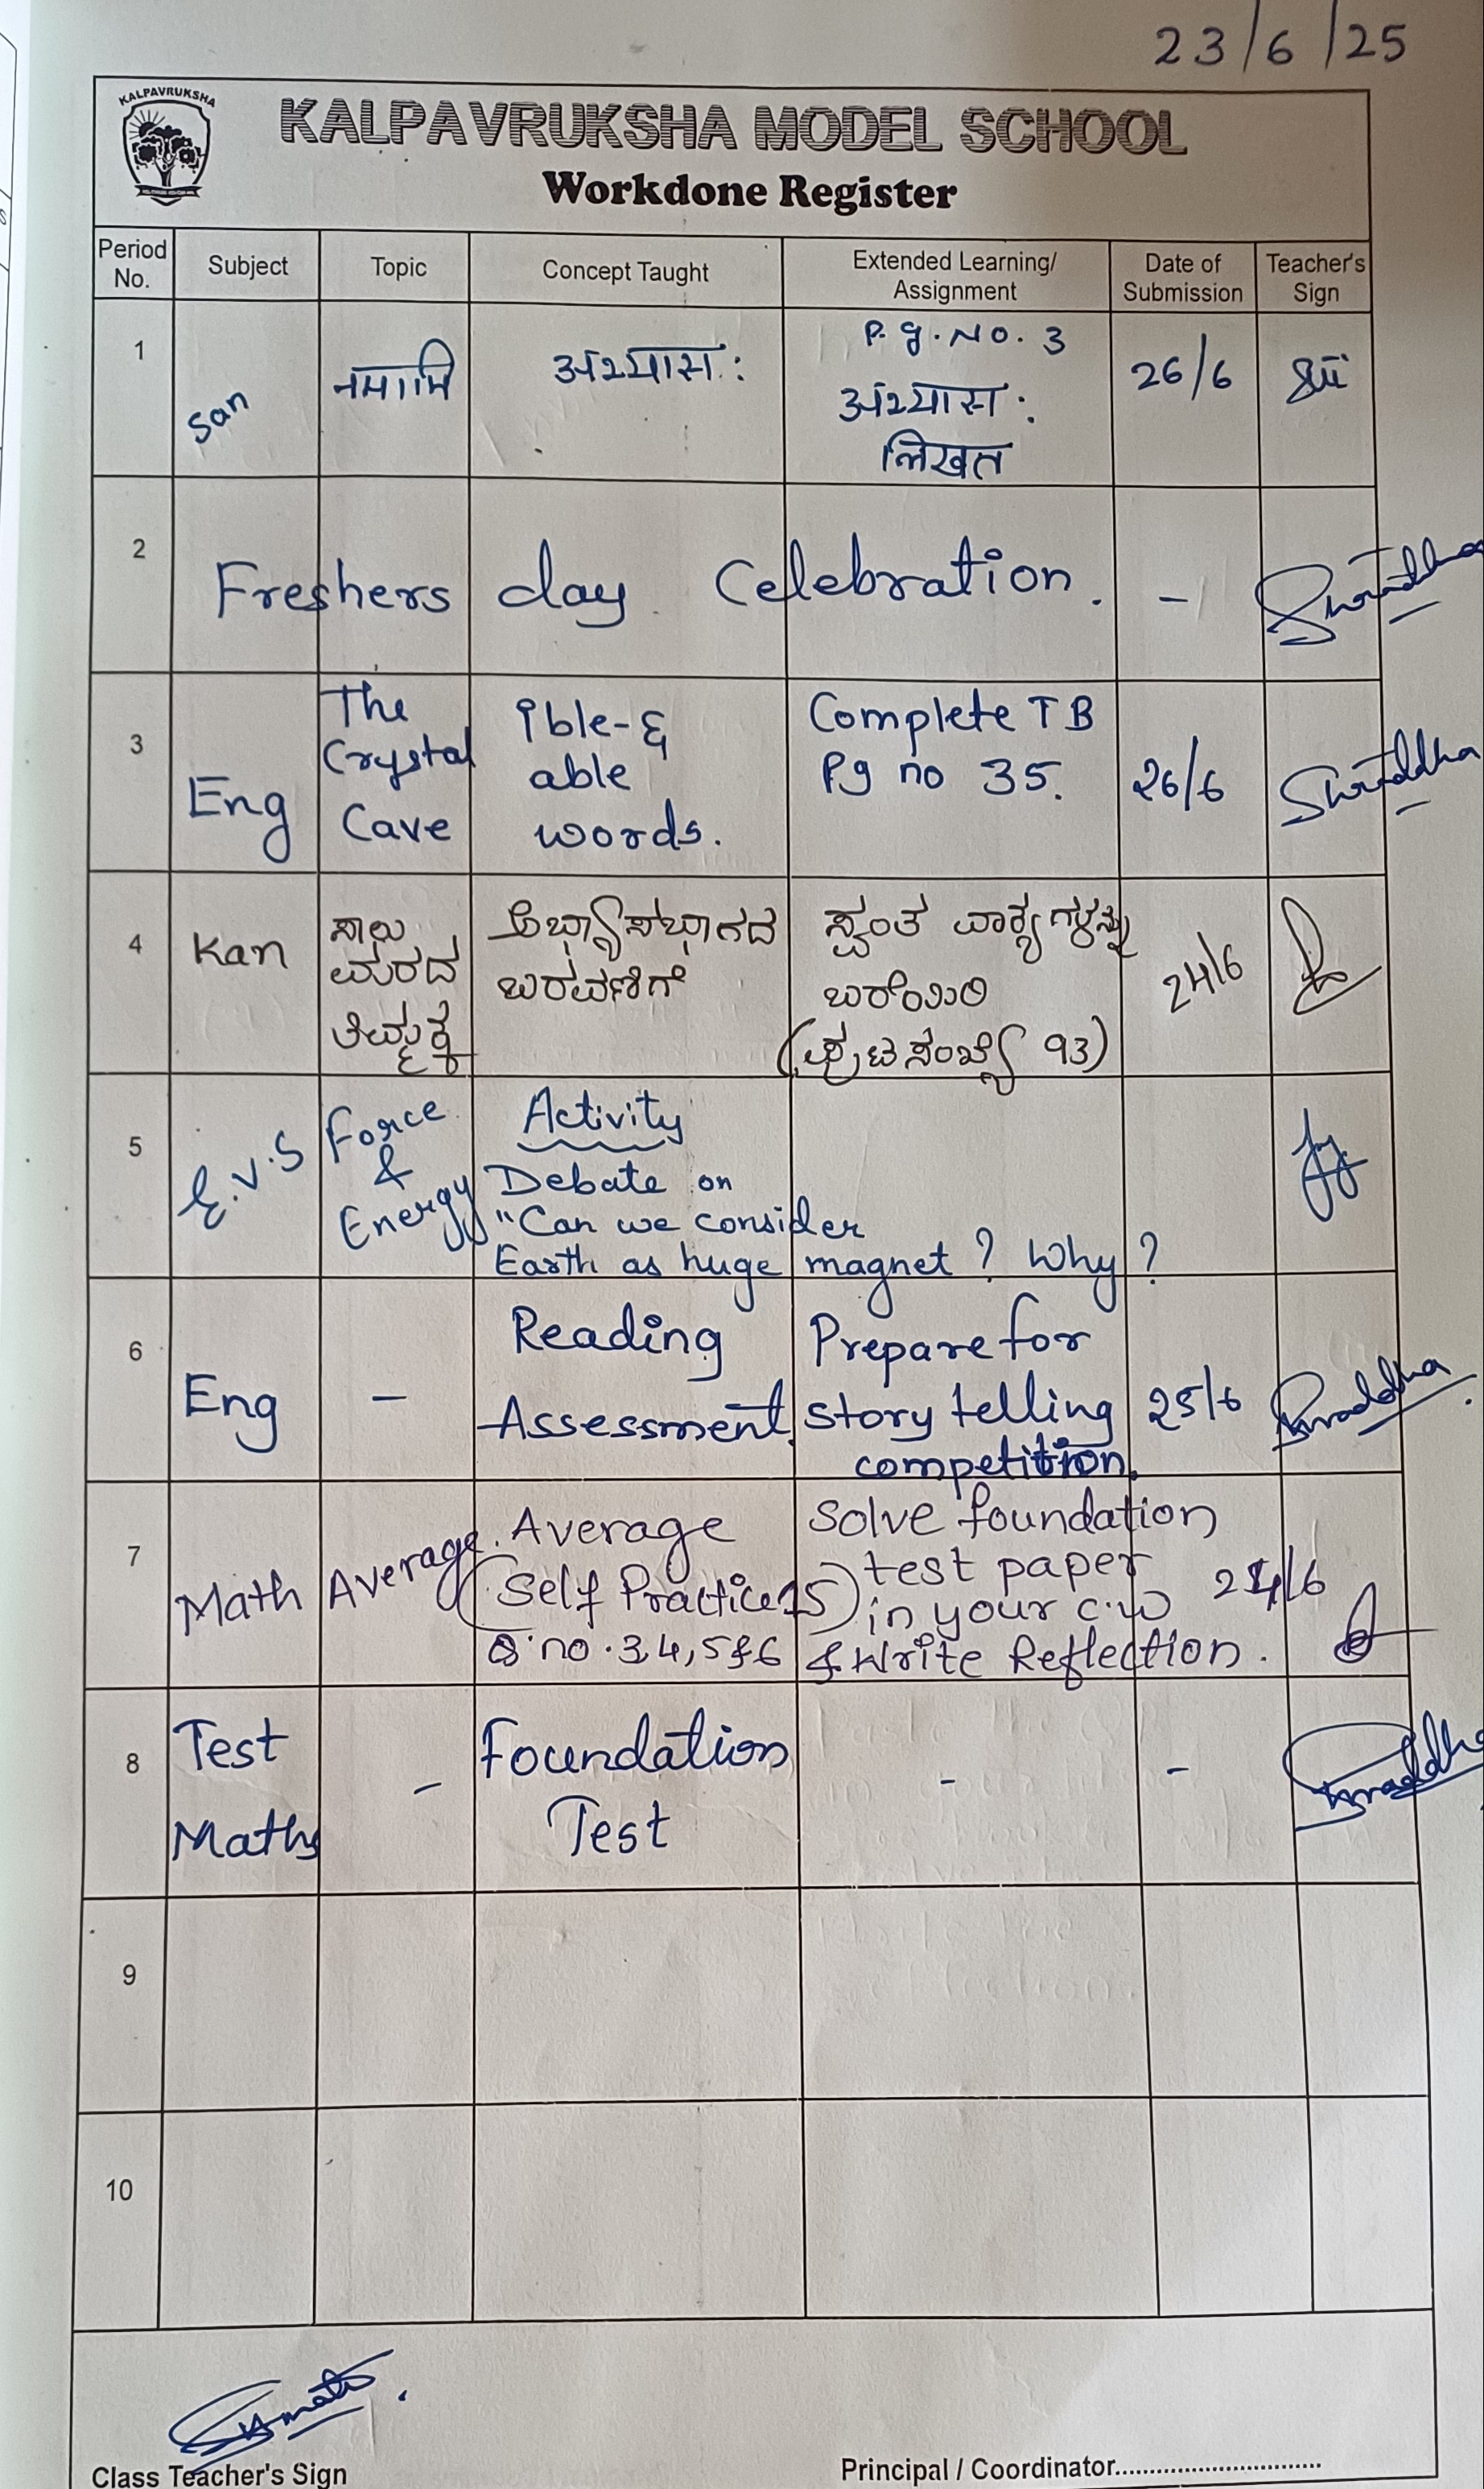 23/6/25
KALPAVRUKSHA
KALPAVRUKSHA MODEL SCHOOL
Workdone Register
Period No. Subject Topic Concept Taught Extended Learning/ Assignment Date of Submission Teacher's Sign
1 San नमामि अभ्यासः P.g.No. 3 26/6
अभ्यासः
लिखत
2 Freshers day Celebration. -
3 Eng The Crystal Cave ible-& able words. Complete TB Pg no 35. 26/6 Shraddha
4 Kan ಸಾಲು ಮರದ ತಿಮ್ಮಕ್ಕ ಅಭ್ಯಾಸಭಾಗದ ಬರವಣಿಗೆ ಸ್ವಂತ ವಾಕ್ಯಗಳನ್ನು ಬರೆಯಿರಿ 24/6
(ಪುಟ ಸಂಖ್ಯೆ 93)
5 E.V.S Force & Energy Activity
Debate on
"Can we consider
Earth as huge magnet ? Why ?
6 Eng - Reading Assessment. Prepare for story telling competition. 25/6 Shraddha
7 Math Average. Average solve foundation
(Self Practice 15) test paper
in your c.w 24/6
Q.no.3,4,5&6 & Write Reflection.
8 Test Maths - Foundation Test - - Shraddha
9
10
Class Teacher's Sign
Principal / Coordinator..............................